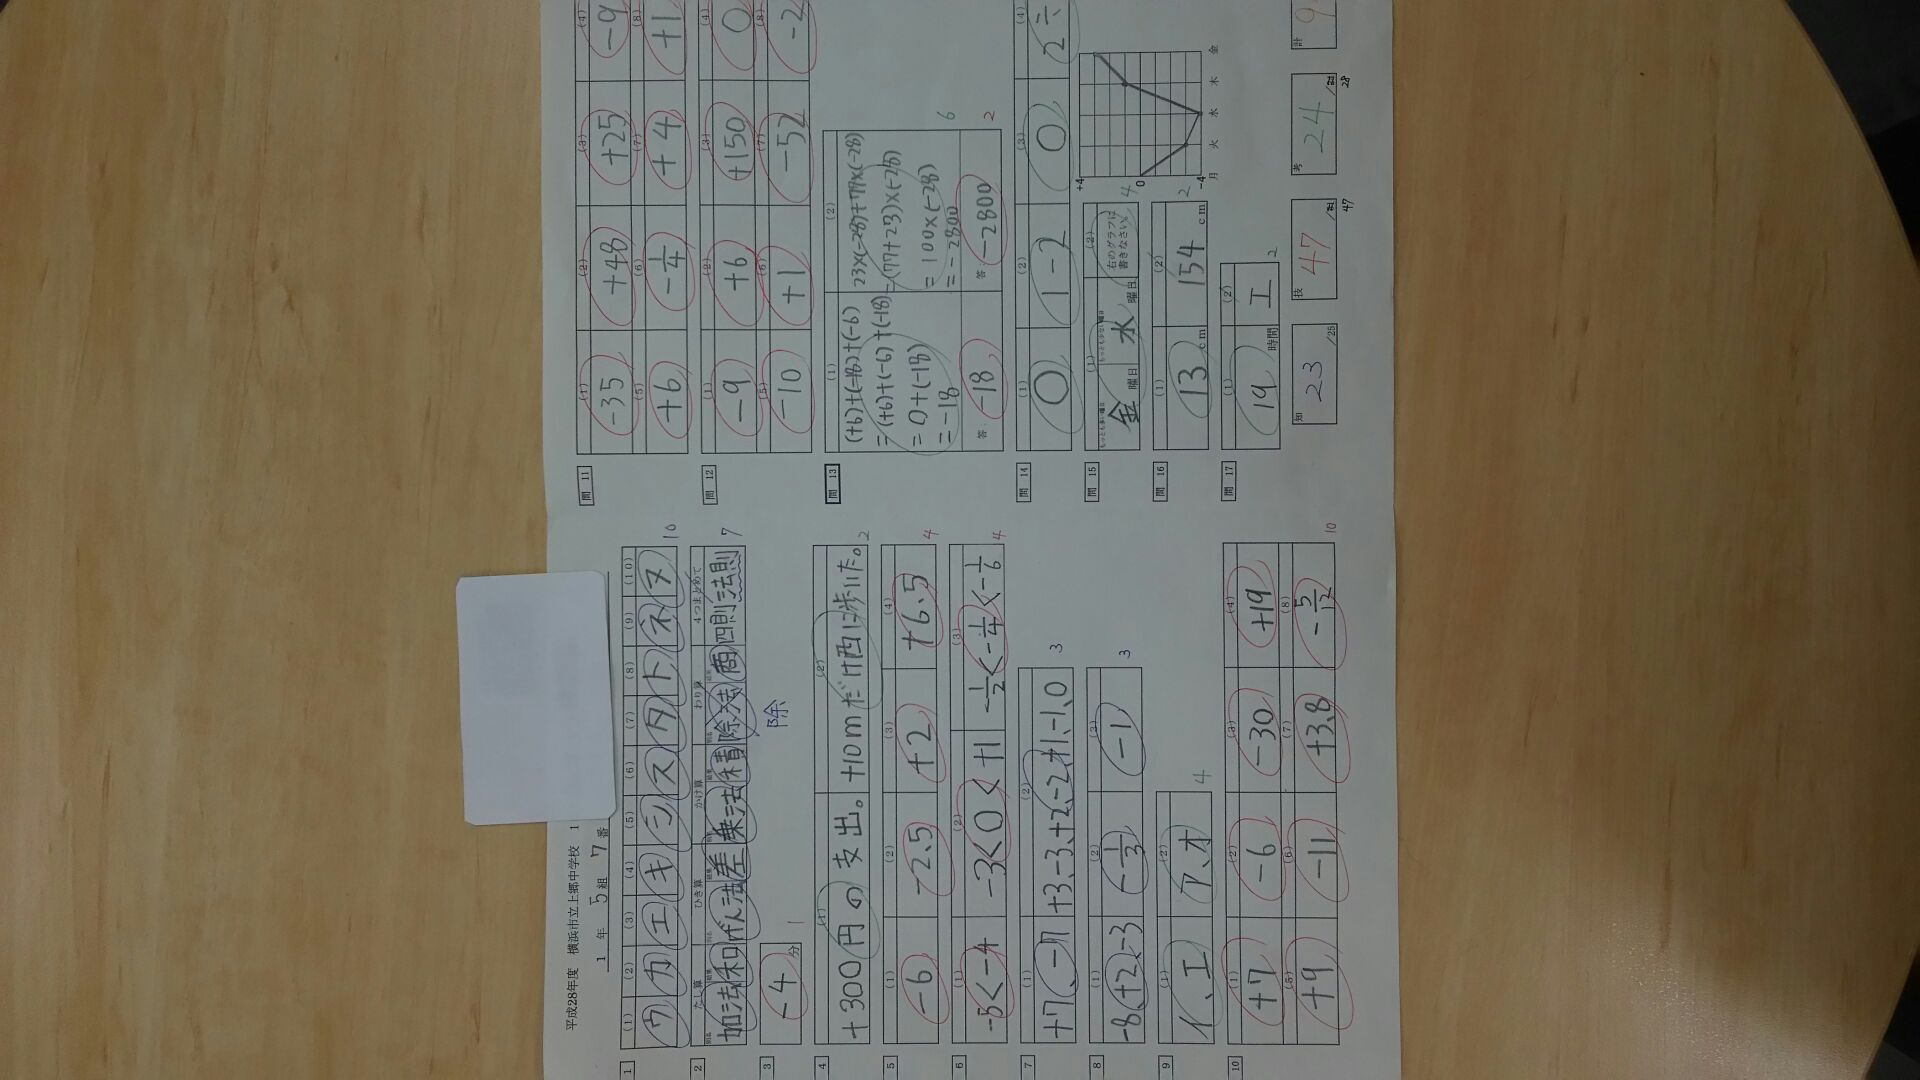 平成28年度 横浜市立上郷中学校 1
1 年 5 組 7 番
1
(1) (2) (3) (4) (5) (6) (7) (8) (9) (10)
ウ カ エ キ シ ス タ ト ネ ヌ
10
2
たし算 ひき算 かけ算 わり算 4つまとめて
加法 和 げん法 差 乗法 積 除法 商 四則法則
7
除
3
-4 分
1
4
(1) (2)
+300円の支出。 +10mだけ西に歩いた。
2
5
(1) (2) (3) (4)
-6 -2.5 +2 +6.5
4
6
(1) (2) (3)
-5<-4 -3<0<+1 -1/2<-1/4<-1/6
4
7
(1) (2)
+7、-7 +3、-3、+2、-2、+1、-1、0
3
8
(1) (2) (3)
-8、+2、-3 -1/3 -1
3
9
(1) (2)
イ、エ ア、オ
4
10
(1) (2) (3) (4)
+7 -6 -30 +19
(5) (6) (7) (8)
+9 -11 +3.8 -5/12
10
問 11
(1) (2) (3) (4)
-35 +48 +25 -9
(5) (6) (7) (8)
+6 -1/4 +4 +1
問 12
(1) (2) (3) (4)
-9 +6 +150 0
(5) (6) (7) (8)
-10 +1 -52 -2
問 13
(1) (2)
(+6)+(-18)+(-6)
=(+6)+(-6)+(-18)
=0+(-18)
=-18
答: -18
23×(-28)+77×(-28)
=(77+23)×(-28)
=100×(-28)
=-2800
答 -2800
6
2
問 14
(1) (2) (3) (4)
0 1-2 0 2÷
問 15
(1) (2)
もっとも多い曜日 金 曜日 もっとも少ない曜日 水 曜日
右のグラフに
書きなさい。
4
+4
0
-4
月 火 水 木 金
問 16
(1) (2)
13 cm 154 cm
2
問 17
(1) (2)
19 時間 エ
2
知 23 /25
技 47 47
考 24 28
計 9